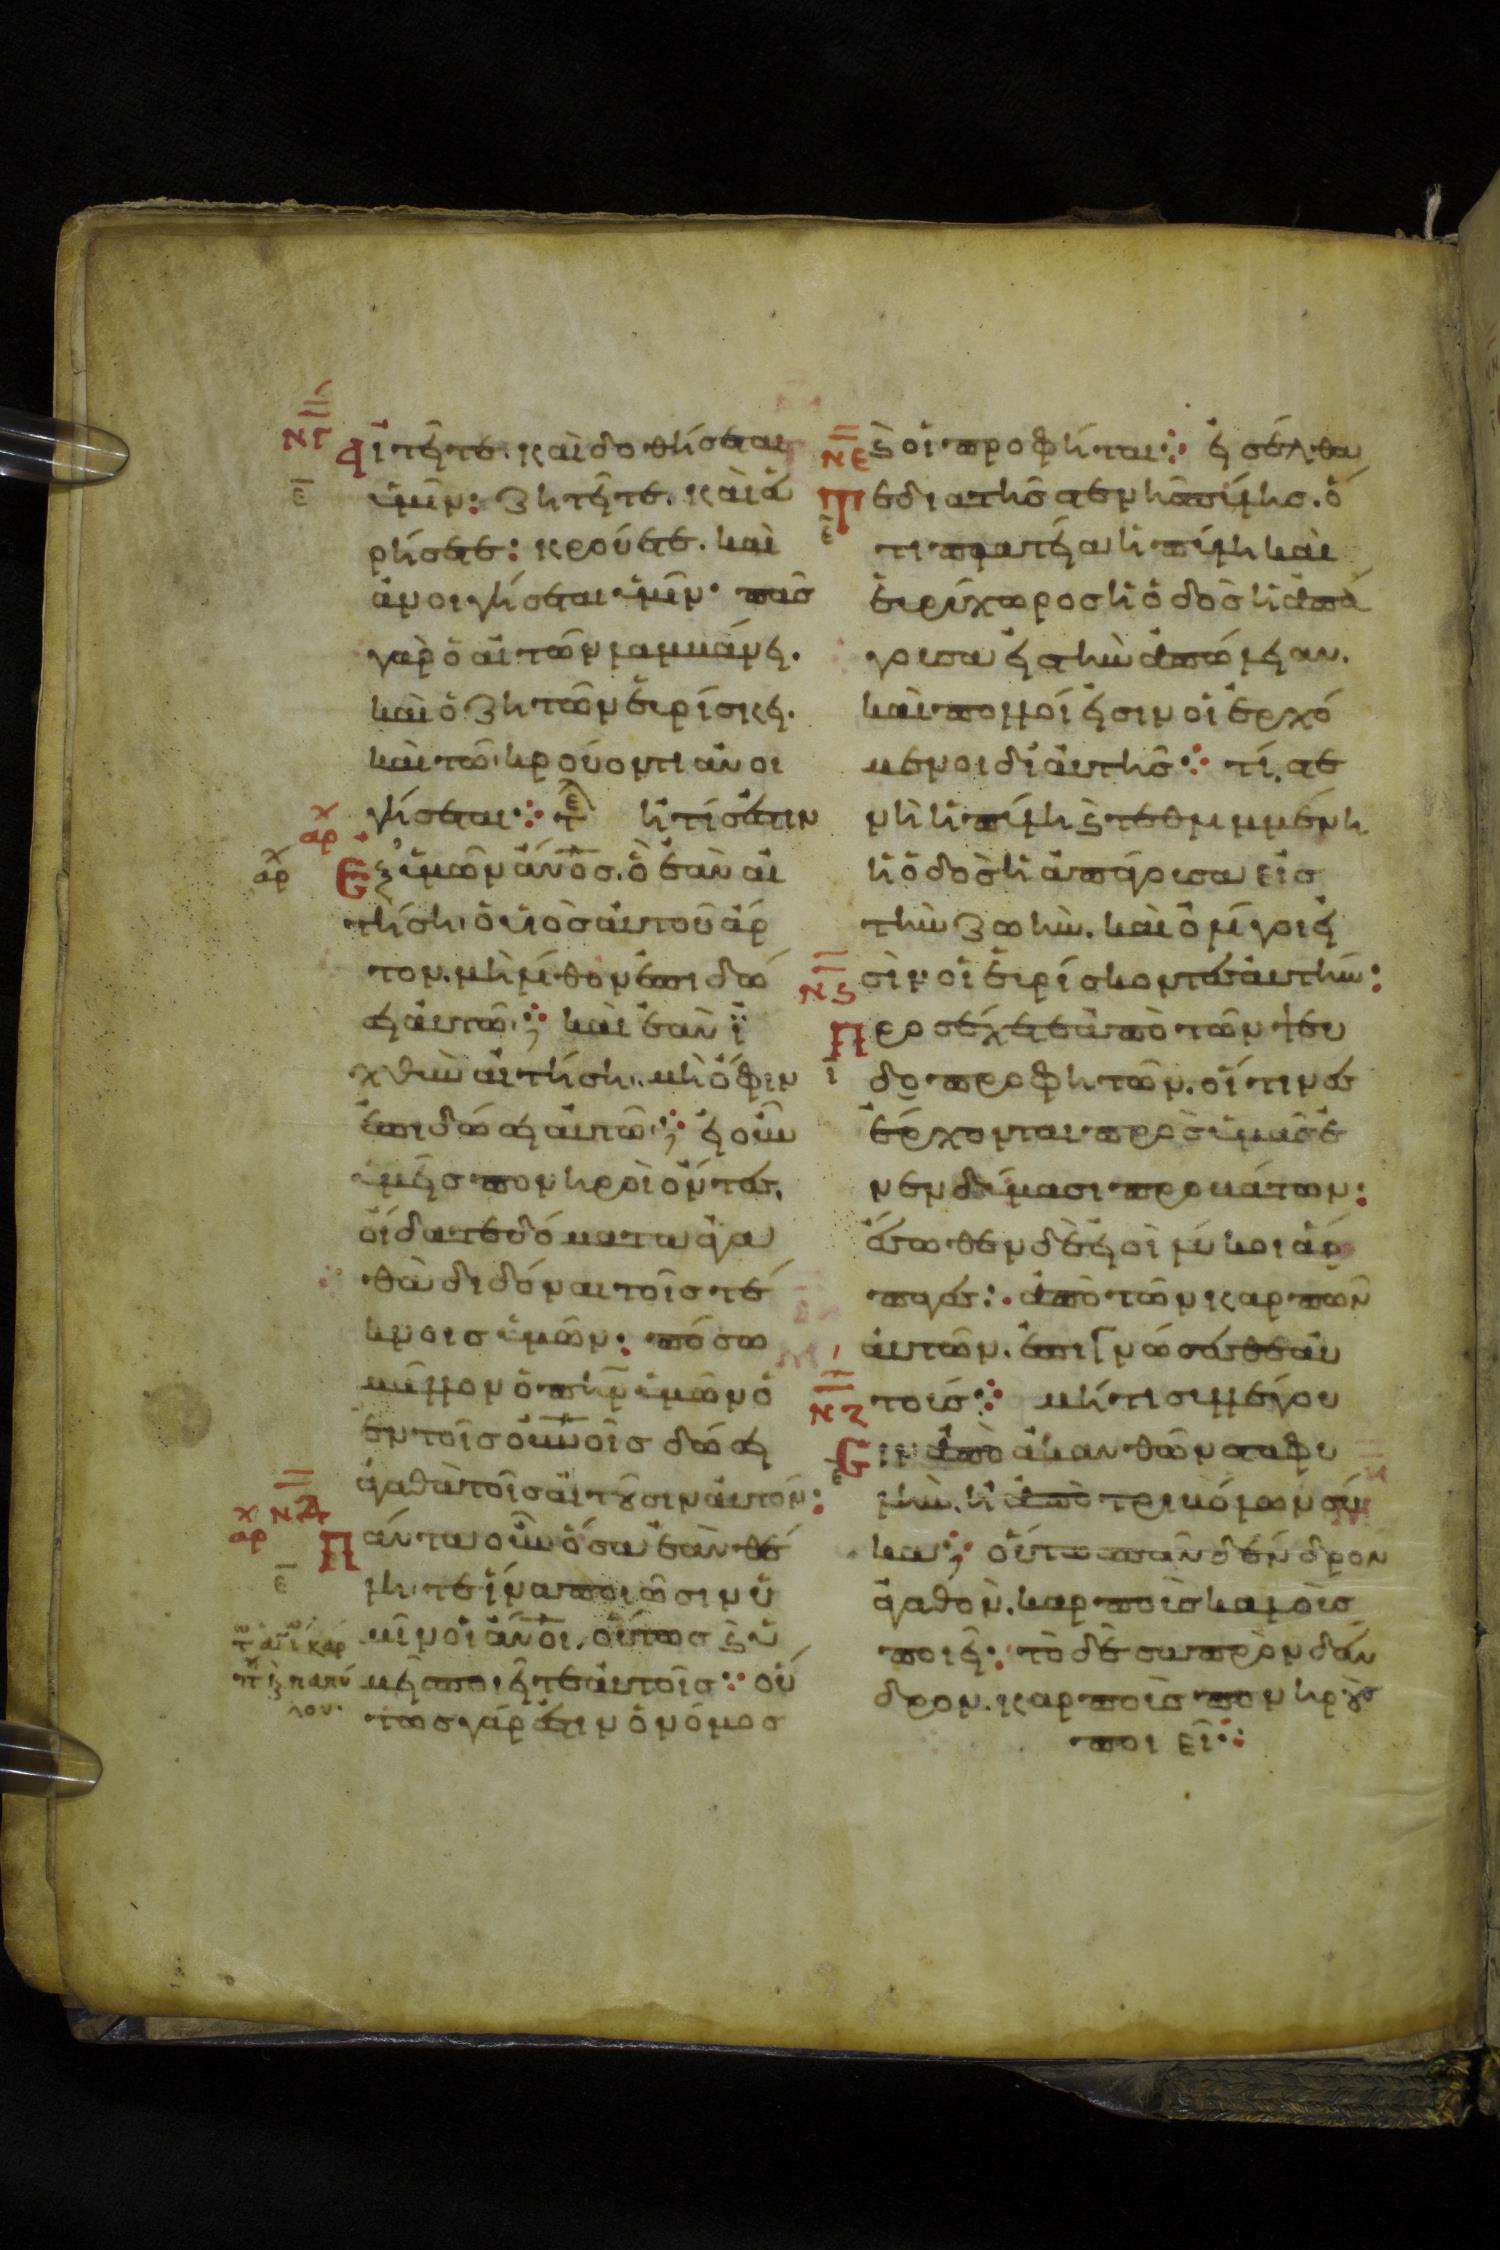 ΝΓ
Αἰτεῖτε. καὶ δοθήσεται
ε̄
ὑμῖν: ζητεῖτε. καὶ εὑ
ρήσετε: κρούετε. καὶ
ἀνοιγήσεται ὑμῖν· πᾶσ
γὰρ ὁ αἰτῶν λαμβάνει.
καὶ ὁ ζητῶν εὑρίσκει.
καὶ τῶ κρούοντι ἀνοι
γήσεται ἢ τίσ ἐστιν
αρχ
αρχ
Ἐξ ὑμῶν ἄνοσ. ὃ ἐὰν αἰ
τήσῃ ὁ υἱὸσ αὐτοῦ ἄρ
τον. μὴ λίθον ἐπιδώ
σει αὐτῶ; καὶ ἐὰν ἰ
χθὺν αἰτήσῃ. μὴ ὄφιν
ἐπιδώσει αὐτῶ; εἰ οὖν
ὑμεῖσ πονηροὶ ὄντεσ.
οἴδατε δόματα ἀγα
θὰ διδόναι τοῖσ τέ
κνοισ ὑμῶν: πόσω
μᾶλλον ὁ πηρ ὑμῶν ὁ
ἐν τοῖσ οὐνοῖσ δώσει
ἀγαθὰ τοῖσ αἰτοῦσιν αὐτόν:
ΝΔ
αρχ
Πάντα οὖν ὅσα ἐὰν θέ
ε̄
λητε ἵνα ποιῶσιν ὑ
μῖν οἱ ἄνοι. οὕτωσ ϗ ὑ
μεῖσ ποιεῖτε αὐτοῖσ οὗ
τωσ γάρ ἐστιν ὁ νόμοσ
ΝΕ
ϗ οἱ προφῆται εἰσέλθα
Τε διὰ τῆσ στενῆσ πύλησ. ὅ
ε̄
τι πλατεῖα ἡ πύλη καὶ
εὐρύχωροσ ἡ ὁδὸσ ἡ ἀπά
γουσα εἰσ τὴν ἀπώλειαν.
καὶ πολλοί εἰσιν οἱ ἐρχό
μενοι δι᾽ αὐτῆσ τί στε
νὴ ἡ πύλη ϗ τεθλιμμένη
ἡ ὁδὸσ ἡ ἀπάγουσα εἰσ
τὴν ζωὴν. καὶ ὀλίγοι εἰ
σὶν οἱ εὑρίσκοντεσ αὐτήν:
ΝϚ
Προσέχετε ἀπὸ τῶν ψευ
ι
δοπροφητῶν. οἵτινεσ
ἔρχονται πρὸσ ὑμᾶσ ἐ
ν ἐνδύμασι προβάτων:
ἔσωθεν δέ εἰσι λύκοι ἅρ
παγεσ: ἀπὸ τῶν καρπῶν
αὐτῶν. ἐπιγνώσεσθε αὐ
τούσ μήτι συλλέγου
ΝΖ
ε̄
Ϲιν ἀπὸ ἀκανθῶν σταφυ
λὴν. ἢ ἀπὸ τριβόλων σύ
κα; οὕτω πᾶν δένδρον
ἀγαθὸν. καρποὺσ καλοὺσ
ποιεῖ: τὸ δὲ σαπρὸν δέν
δρον. καρποὺσ πονηροὺσ
ποιεῖ